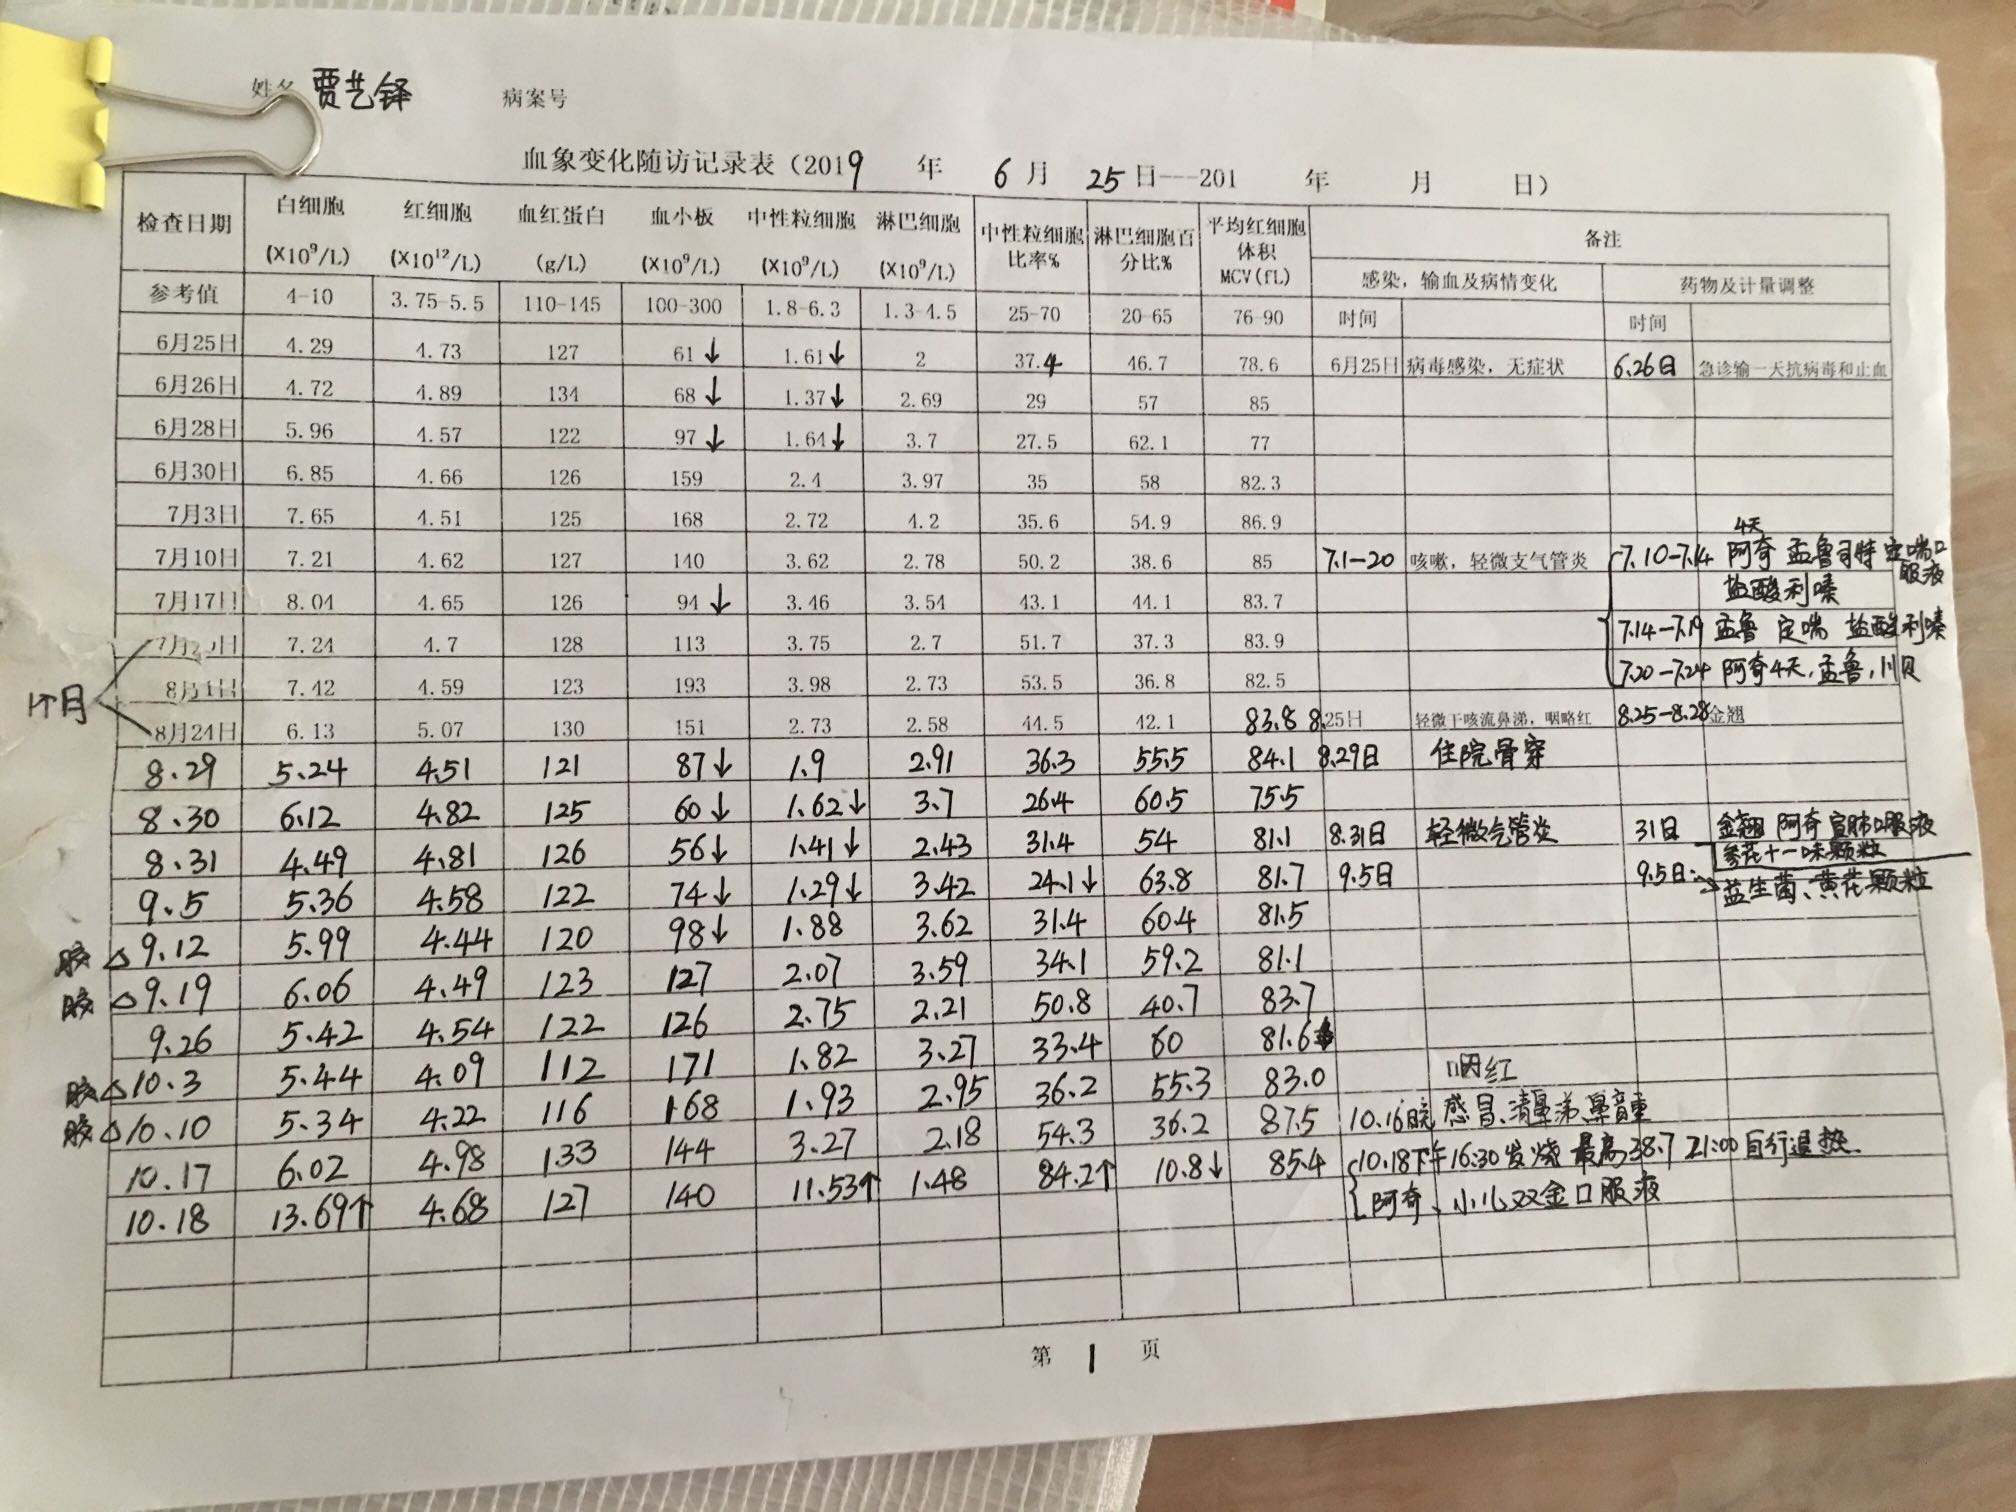 姓名 贾艺铎 病案号
血象变化随访记录表（2019 年 6 月 25 日---201 年 月 日）
检查日期 白细胞 (X10⁹/L) 红细胞 (X10¹²/L) 血红蛋白 (g/L) 血小板 (X10⁹/L) 中性粒细胞 (X10⁹/L) 淋巴细胞 (X10⁹/L) 中性粒细胞比率% 淋巴细胞百分比% 平均红细胞体积 MCV(fL) 备注
感染，输血及病情变化 药物及计量调整
参考值 4-10 3.75-5.5 110-145 100-300 1.8-6.3 1.3-4.5 25-70 20-65 76-90 时间 时间
6月25日 4.29 4.73 127 61↓ 1.61↓ 2 37.4 46.7 78.6 6月25日 病毒感染，无症状 6.26日 急诊输一天抗病毒和止血
6月26日 4.72 4.89 134 68↓ 1.37↓ 2.69 29 57 85
6月28日 5.96 4.57 122 97↓ 1.64↓ 3.7 27.5 62.1 77
6月30日 6.85 4.66 126 159 2.4 3.97 35 58 82.3
7月3日 7.65 4.51 125 168 2.72 4.2 35.6 54.9 86.9
7月10日 7.21 4.62 127 140 3.62 2.78 50.2 38.6 85 7.1-20 咳嗽，轻微支气管炎 7.10-7.14 4天 阿奇 孟鲁司特 定喘口服液
盐酸利嗪
7月17日 8.04 4.65 126 94↓ 3.46 3.54 43.1 44.1 83.7
7.14-7.19 孟鲁 定喘 盐酸利嗪
7.24 4.7 128 113 3.75 2.7 51.7 37.3 83.9
7.20-7.24 阿奇4天，孟鲁，川贝
1个月
8月1日 7.42 4.59 123 193 3.98 2.73 53.5 36.8 82.5
8月24日 6.13 5.07 130 151 2.73 2.58 44.5 42.1 83.8 8.25日 轻微干咳流鼻涕，咽略红 8.25-8.28 金翘
8.29 5.24 4.51 121 87↓ 1.9 2.91 36.3 55.5 84.1 8.29日 住院骨穿
8.30 6.12 4.82 125 60↓ 1.62↓ 3.7 26.4 60.5 75.5
8.31 4.49 4.81 126 56↓ 1.41↓ 2.43 31.4 54 81.1 8.31日 轻微气管炎 31日 金翘 阿奇 宣肺口服液
参花十一味颗粒
9.5 5.36 4.58 122 74↓ 1.29↓ 3.42 24.1↓ 63.8 81.7 9.5日 9.5日 益生菌、黄花颗粒
胶 △9.12 5.99 4.44 120 98↓ 1.88 3.62 31.4 60.4 81.5
胶 △9.19 6.06 4.49 123 127 2.07 3.59 34.1 59.2 81.1
9.26 5.42 4.54 122 126 2.75 2.21 50.8 40.7 83.7
胶 △10.3 5.44 4.09 112 171 1.82 3.27 33.4 60 81.6
胶 △10.10 5.34 4.22 116 168 1.93 2.95 36.2 55.3 83.0
咽红
10.17 6.02 4.98 133 144 3.27 2.18 54.3 36.2 87.5 10.16晚 感冒、清鼻涕、鼻音重
10.18 13.69↑ 4.68 127 140 11.53↑ 1.48 84.2↑ 10.8↓ 85.4 10.18下午16:30发烧 最高38.7 21:00自行退热.
阿奇、小儿双金口服液
第 1 页